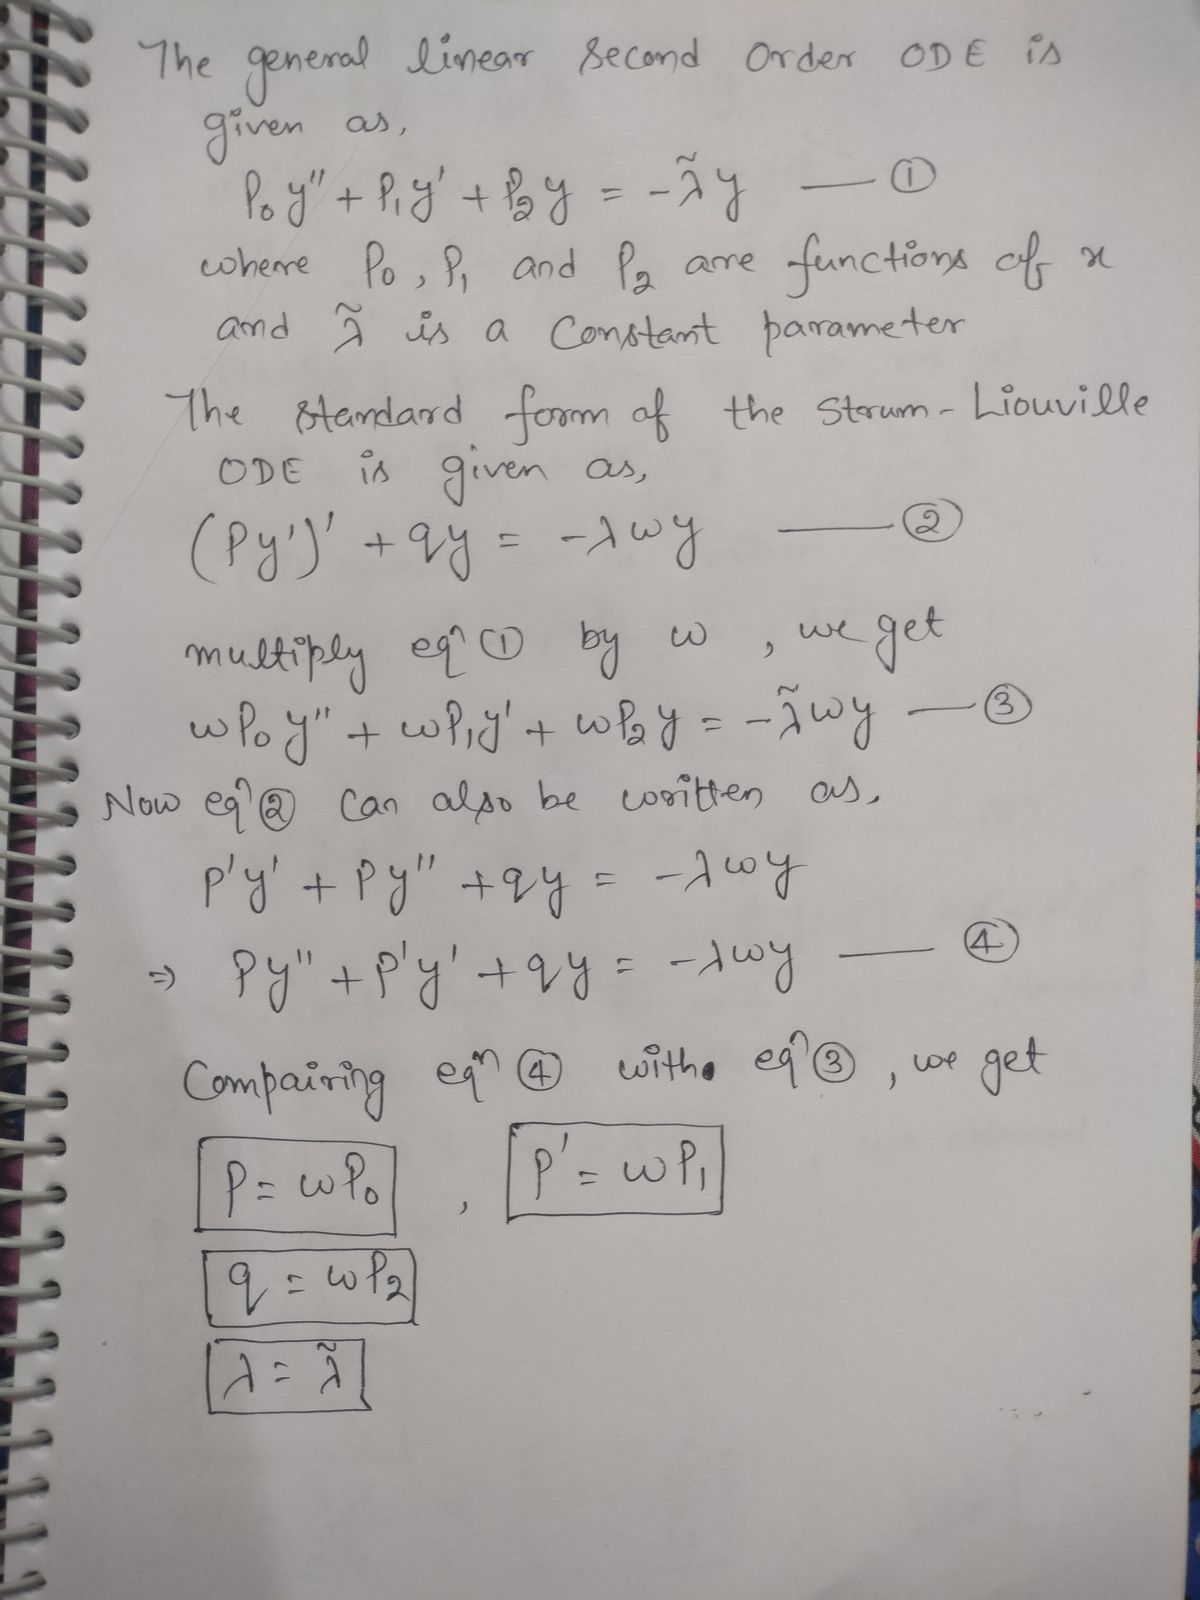 The general linear Second Order ODE is
given as,
P₀y'' + P₁y' + P₂y = -λ̃y — ①
where P₀, P₁ and P₂ are functions of x
and λ̃ is a Constant parameter
The standard form of the Strum-Liouville
ODE is given as,
(Py')' + qy = -λwy — ②
multiply eqⁿ ① by w, we get
wP₀y'' + wP₁y' + wP₂y = -λ̃wy — ③
Now eqⁿ ② Can also be written as,
P'y' + Py'' + qy = -λwy
⇒ Py'' + P'y' + qy = -λwy — ④
Compairing eqⁿ ④ with eqⁿ ③, we get
P = wP₀ , P' = wP₁
q = wP₂
λ = λ̃